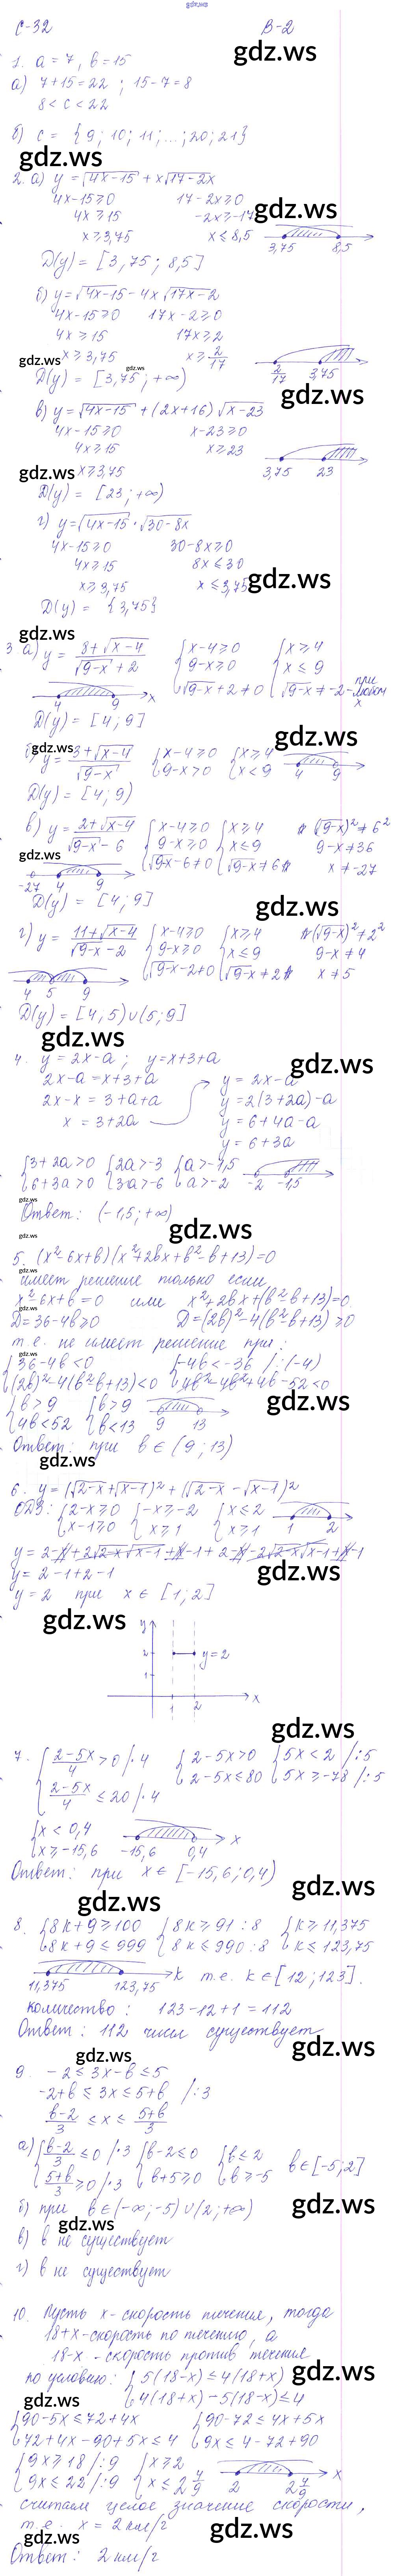 gdz.ws
С-32 В-2
gdz.ws
1. a = 7, b = 15
а) 7+15 = 22 ; 15-7 = 8
8 < c < 22
б) c = {9; 10; 11; ...; 20; 21}
gdz.ws
2. а) y = √4x-15 + x√17-2x
4x-15 ≥ 0 17-2x ≥ 0
gdz.ws
4x ≥ 15 -2x ≥ -17
x ≥ 3,75 x ≤ 8,5
3,75 8,5
D(y) = [3,75; 8,5]
б) y = √4x-15 - 4x√17x-2
4x-15 ≥ 0 17x-2 ≥ 0
4x ≥ 15 17x ≥ 2
gdz.ws x ≥ 3,75 x ≥ 2/17
2/17 3,75
gdz.ws
D(y) = [3,75; +∞)
gdz.ws
в) y = √4x-15 + (2x+16)√x-23
4x-15 ≥ 0 x-23 ≥ 0
4x ≥ 15 x ≥ 23
gdz.ws x ≥ 3,75
3,75 23
D(y) = [23; +∞)
г) y = √4x-15 · √30-8x
4x-15 ≥ 0 30-8x ≥ 0
4x ≥ 15 8x ≤ 30
x ≥ 3,75 x ≤ 3,75 gdz.ws
D(y) = {3,75}
gdz.ws
3 а) y = (8+√x-4)/(√9-x+2) {x-4 ≥ 0 {x ≥ 4
9-x ≥ 0 x ≤ 9
√9-x+2 ≠ 0 √9-x ≠ -2 - при любом x
4 9 x
D(y) = [4; 9]
gdz.ws
б) y = (3+√x-4)/√9-x {x-4 ≥ 0 {x ≥ 4
gdz.ws
9-x > 0 x < 9
4 9
D(y) = [4; 9)
в) y = (2+√x-4)/(√9-x-6) {x-4 ≥ 0 {x ≥ 4 (√9-x)² ≠ 6²
9-x ≥ 0 x ≤ 9 9-x ≠ 36
gdz.ws
√9-x-6 ≠ 0 √9-x ≠ 6 x ≠ -27
-27 4 9
D(y) = [4; 9]
gdz.ws
г) y = (11+√x-4)/(√9-x-2) {x-4 ≥ 0 {x ≥ 4 (√9-x)² ≠ 2²
9-x ≥ 0 x ≤ 9 9-x ≠ 4
√9-x-2 ≠ 0 √9-x ≠ 2 x ≠ 5
4 5 9
D(y) = [4,5) ∪ (5; 9]
gdz.ws
4. y = 2x-a ; y = x+3+a
gdz.ws
2x-a = x+3+a y = 2x-a
2x-x = 3+a+a y = 2(3+2a)-a
x = 3+2a y = 6+4a-a
y = 6+3a
{3+2a > 0 {2a > -3 {a > -1,5
6+3a > 0 3a > -6 a > -2
-2 -1,5
gdz.ws
Ответ: (-1,5; +∞)
gdz.ws
gdz.ws
5. (x²-6x+b)(x²+2bx+b²-b+13) = 0
gdz.ws
имеет решение только если
x²-6x+b = 0 или x²+2bx+(b²-b+13) = 0
D = 36-4b ≥ 0 D = (2b)²-4(b²-b+13) ≥ 0
т.е. не имеет решение при:
gdz.ws
{36-4b < 0 {-4b < -36 /:(-4)
(2b)²-4(b²-b+13) < 0 4b²-4b²+4b-52 < 0
gdz.ws
{b > 9 {b > 9
4b < 52 b < 13
9 13
Ответ: при b ∈ (9; 13)
gdz.ws
6. y = (√2-x+√x-1)² + (√2-x-√x-1)²
ОДЗ: {2-x ≥ 0 {-x ≥ -2 {x ≤ 2
x-1 ≥ 0 x ≥ 1 x ≥ 1
1 2
y = 2-x+2√2-x√x-1+x-1+2-x-2√2-x√x-1+x-1
y = 2-1+2-1
gdz.ws
y = 2 при x ∈ [1; 2]
gdz.ws
y
2 y = 2
1
1 2 x
gdz.ws
7. {(2-5x)/4 > 0 /·4 {2-5x > 0 {5x < 2 /:5
(2-5x)/4 ≤ 20 /·4 2-5x ≤ 80 5x ≥ -78 /:5
{x < 0,4
x ≥ -15,6
-15,6 0,4 x
Ответ: при x ∈ [-15,6; 0,4)
gdz.ws
gdz.ws
8. {8k+9 ≥ 100 {8k ≥ 91 :8 {k ≥ 11,375
8k+9 ≤ 999 8k ≤ 990 :8 k ≤ 123,75
11,375 123,75 k т.е. k ∈ [12; 123].
количество: 123-12+1 = 112
Ответ: 112 чисел существует
gdz.ws
gdz.ws
9. -2 ≤ 3x-b ≤ 5
-2+b ≤ 3x ≤ 5+b /:3
(b-2)/3 ≤ x ≤ (5+b)/3
а) {(b-2)/3 ≤ 0 /·3 {b-2 ≤ 0 {b ≤ 2
(5+b)/3 ≥ 0 /·3 b+5 ≥ 0 b ≥ -5
b ∈ [-5; 2]
б) при b ∈ (-∞; -5) ∪ (2; +∞)
gdz.ws
gdz.ws
в) b не существует
г) b не существует
10. Пусть x - скорость течения, тогда
18+x - скорость по течению, а
18-x - скорость против течения
по условию: {5(18-x) ≤ 4(18+x)
gdz.ws
4(18+x)-5(18-x) ≤ 4
gdz.ws
{90-5x ≤ 72+4x {90-72 ≤ 4x+5x
42+4x-90+5x ≤ 4 9x ≤ 4-72+90
{9x ≥ 18 /:9 {x ≥ 2
9x ≤ 22 /:9 x ≤ 2 4/9
2 2 4/9 x
считаем целое значение скорости,
т.е. x = 2 км/г
gdz.ws
gdz.ws
Ответ: 2 км/г